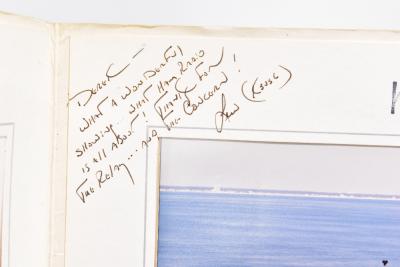 DEREK —
WHAT A WONDERFUL
SHOWING... WHAT HAM RADIO
IS ALL ABOUT! THANKS FOR
THE RELAY... AND THE CONCERN!
(K5USG)